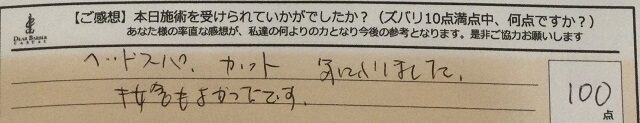 【ご感想】本日施術を受けられていかがでしたか?(ズバリ10点満点中、何点ですか?)
あなた様の率直な感想が、私達の何よりの力となり今後の参考となります。是非ご協力お願いします
DEAR BARBER
CASUAL
ヘッドスパ、カット 気に入りました。
接客もよかったです。
100
点